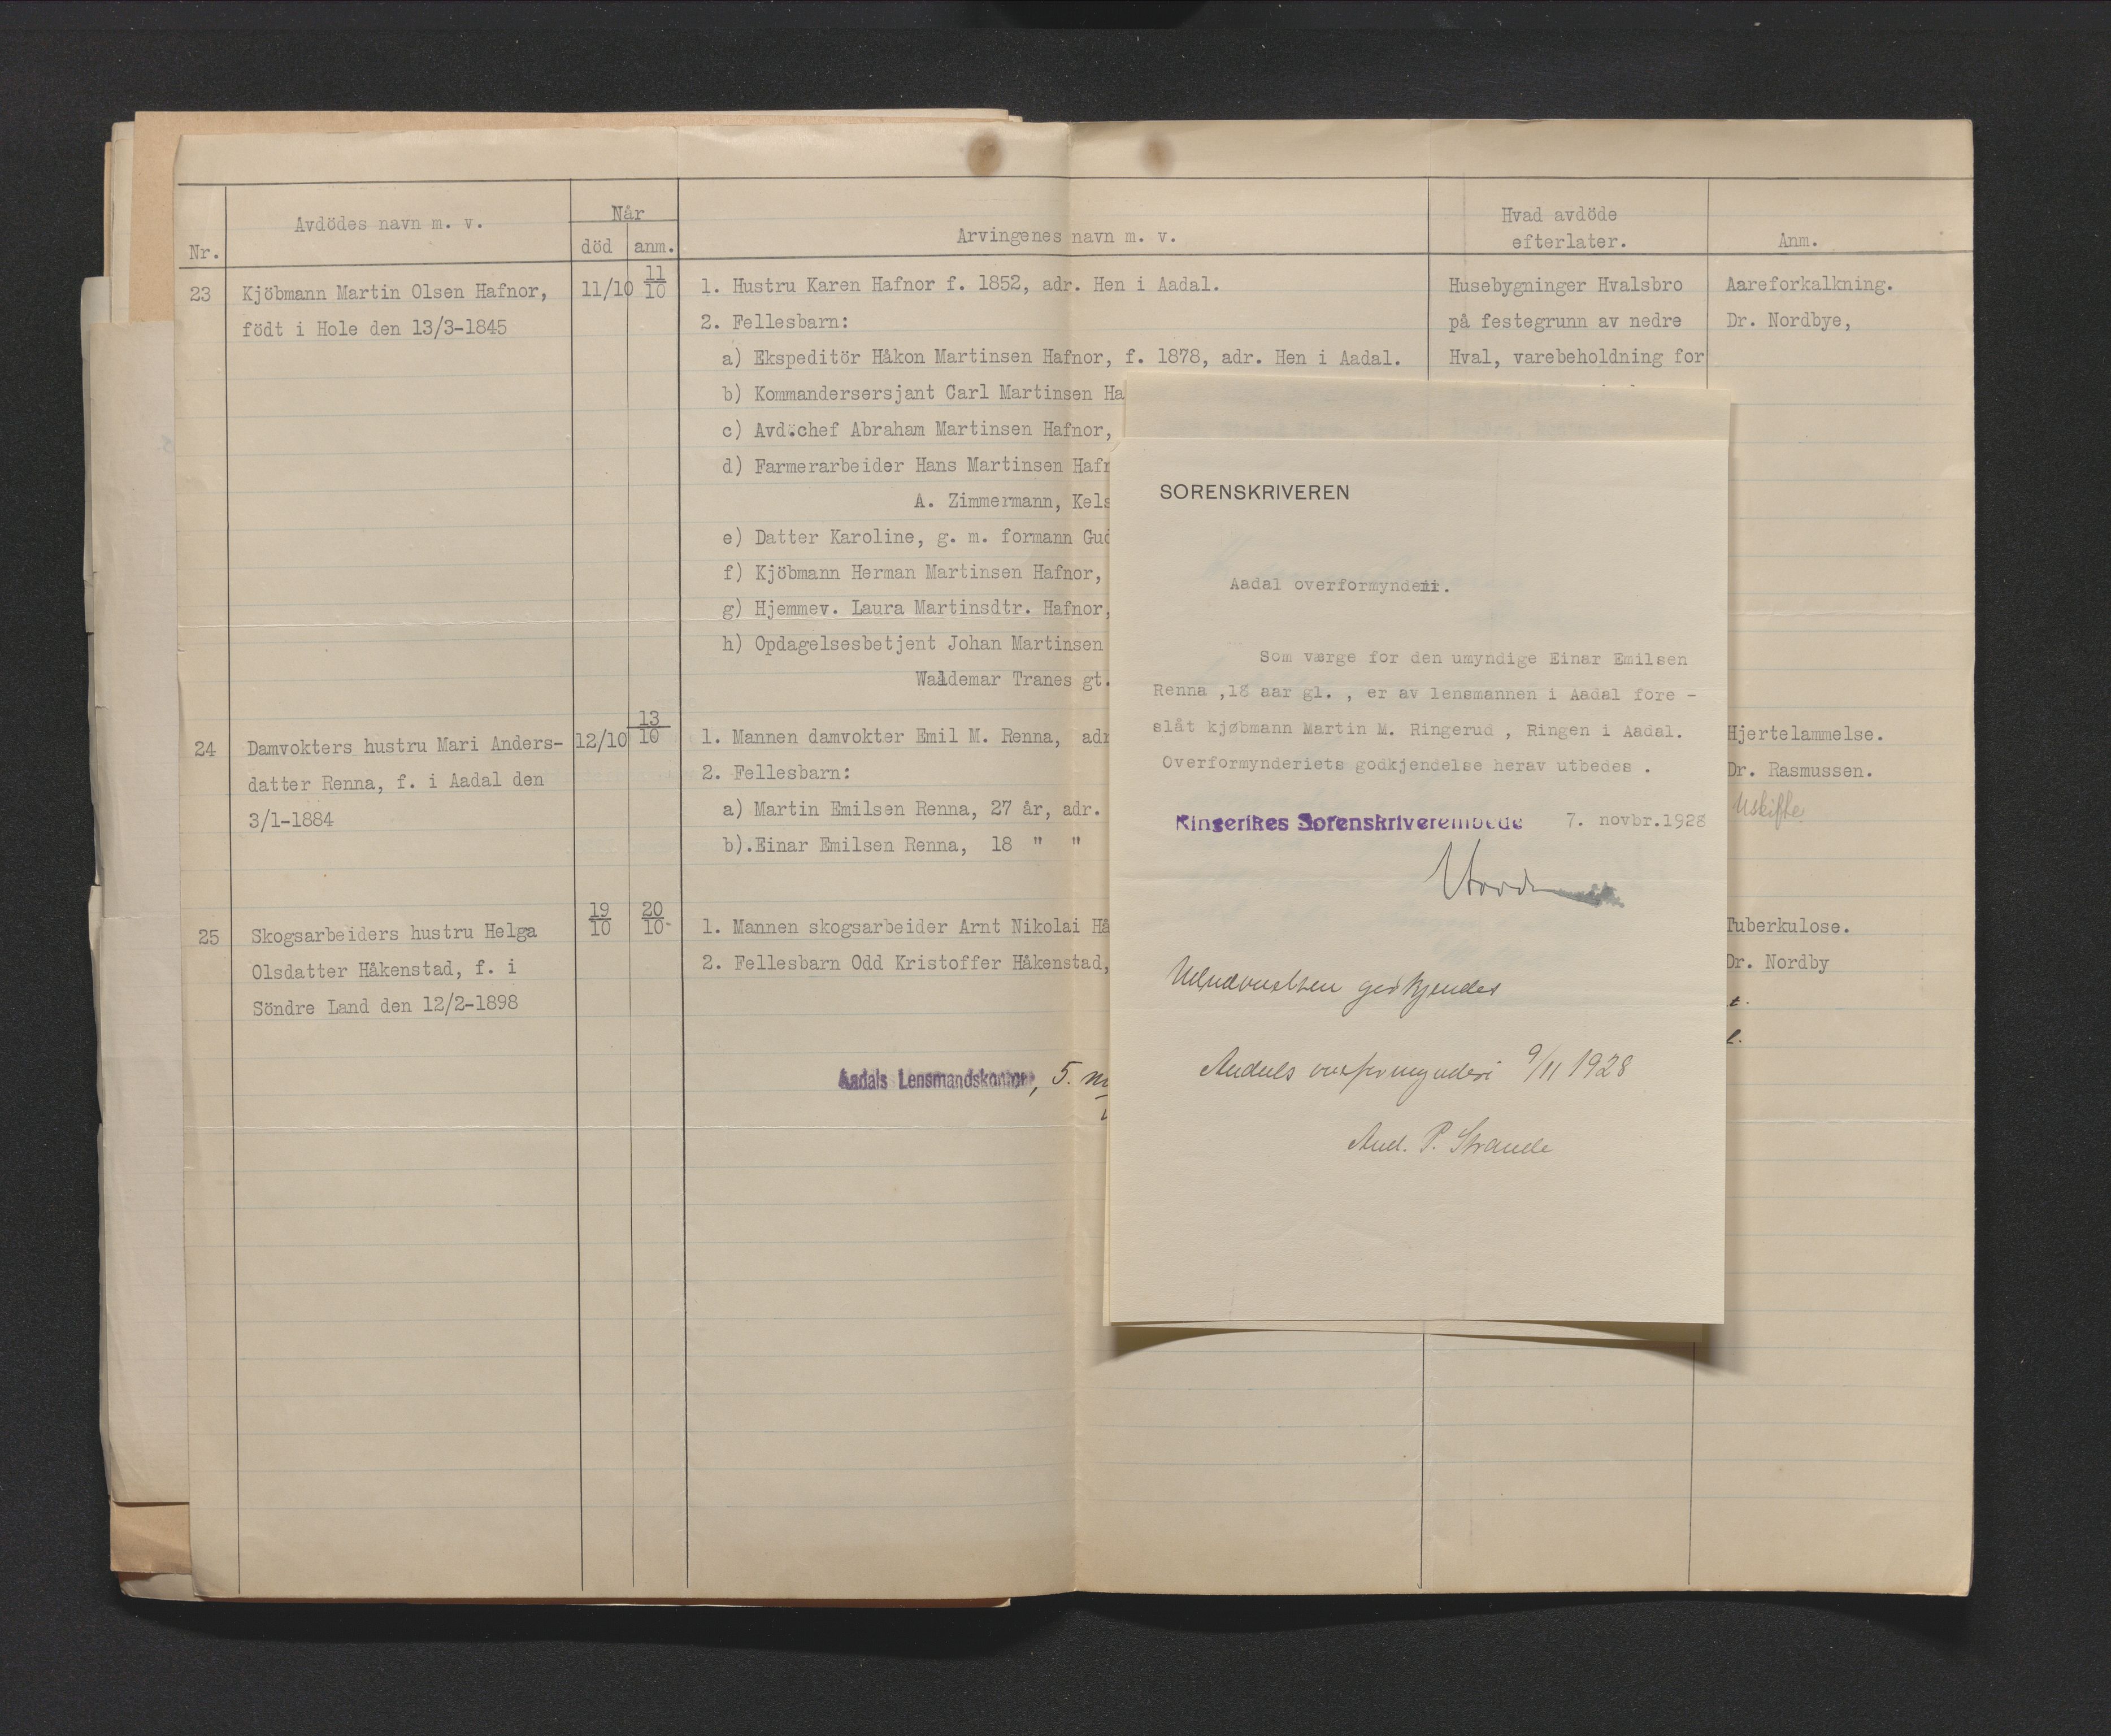 Nr.
Avdödes navn m. v.
Når
död
anm.
Arvingenes navn m. v.
Hvad avdöde
efterlater.
Anm.
23
Kjöbmann Martin Olsen Hafnor,
födt i Hole den 13/3-1845
11/10
11/10
1. Hustru Karen Hafnor f. 1852, adr. Hen i Aadal.
2. Fellesbarn:
a) Ekspeditör Håkon Martinsen Hafnor, f. 1878, adr. Hen i Aadal.
b) Kommandersersjant Carl Martinsen Ha
c) Avd.chef Abraham Martinsen Hafnor,
d) Farmerarbeider Hans Martinsen Hafn
A. Zimmermann, Kels
e) Datter Karoline, g. m. formann Gud
f) Kjöbmann Herman Martinsen Hafnor,
g) Hjemmev. Laura Martinsdtr. Hafnor,
h) Opdagelsesbetjent Johan Martinsen
Waldemar Tranes gt.
Husebygninger Hvalsbro
på festegrunn av nedre
Hval, varebeholdning for
Aareforkalkning.
Dr. Nordbye,
24
Damvokters hustru Mari Anders-
datter Renna, f. i Aadal den
3/1-1884
12/10
13/10
1. Mannen damvokter Emil M. Renna, adr
2. Fellesbarn:
a) Martin Emilsen Renna, 27 år, adr.
b).Einar Emilsen Renna, 18 " "
Hjertelammelse.
Dr. Rasmussen.
Uskifte
25
Skogsarbeiders hustru Helga
Olsdatter Håkenstad, f. i
Söndre Land den 12/2-1898
19/10
20/10-
1. Mannen skogsarbeider Arnt Nikolai Hå
2. Fellesbarn Odd Kristoffer Håkenstad,
Tuberkulose.
Dr. Nordby
t.
l.
Aadals Lensmandskontor, 5.
SORENSKRIVEREN
Aadal overformynderi.
Som værge for den umyndige Einar Emilsen
Renna ,18 aar gl. , er av lensmannen i Aadal fore -
slåt kjøbmann Martin M. Ringerud , Ringen i Aadal.
Overformynderiets godkjendelse herav utbedes .
Ringerikes Sorenskriverembede 7. novbr.1928
godkjendes
Aadals overformynderi 9/11 1928
And. P. Strande